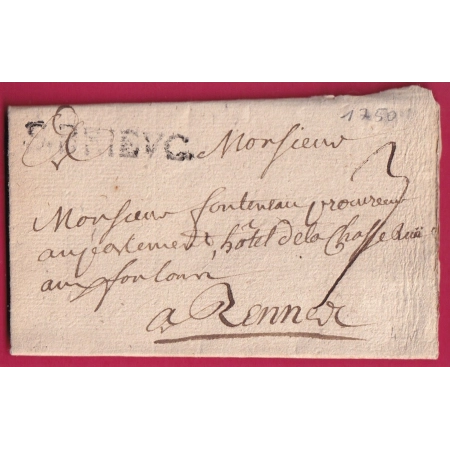 1750
S.BRIEVC
Monsieur
Monsieur fonteneau procureur
au parlement, hôtel de la Chasse Ruë
aux foulons
a Rennes